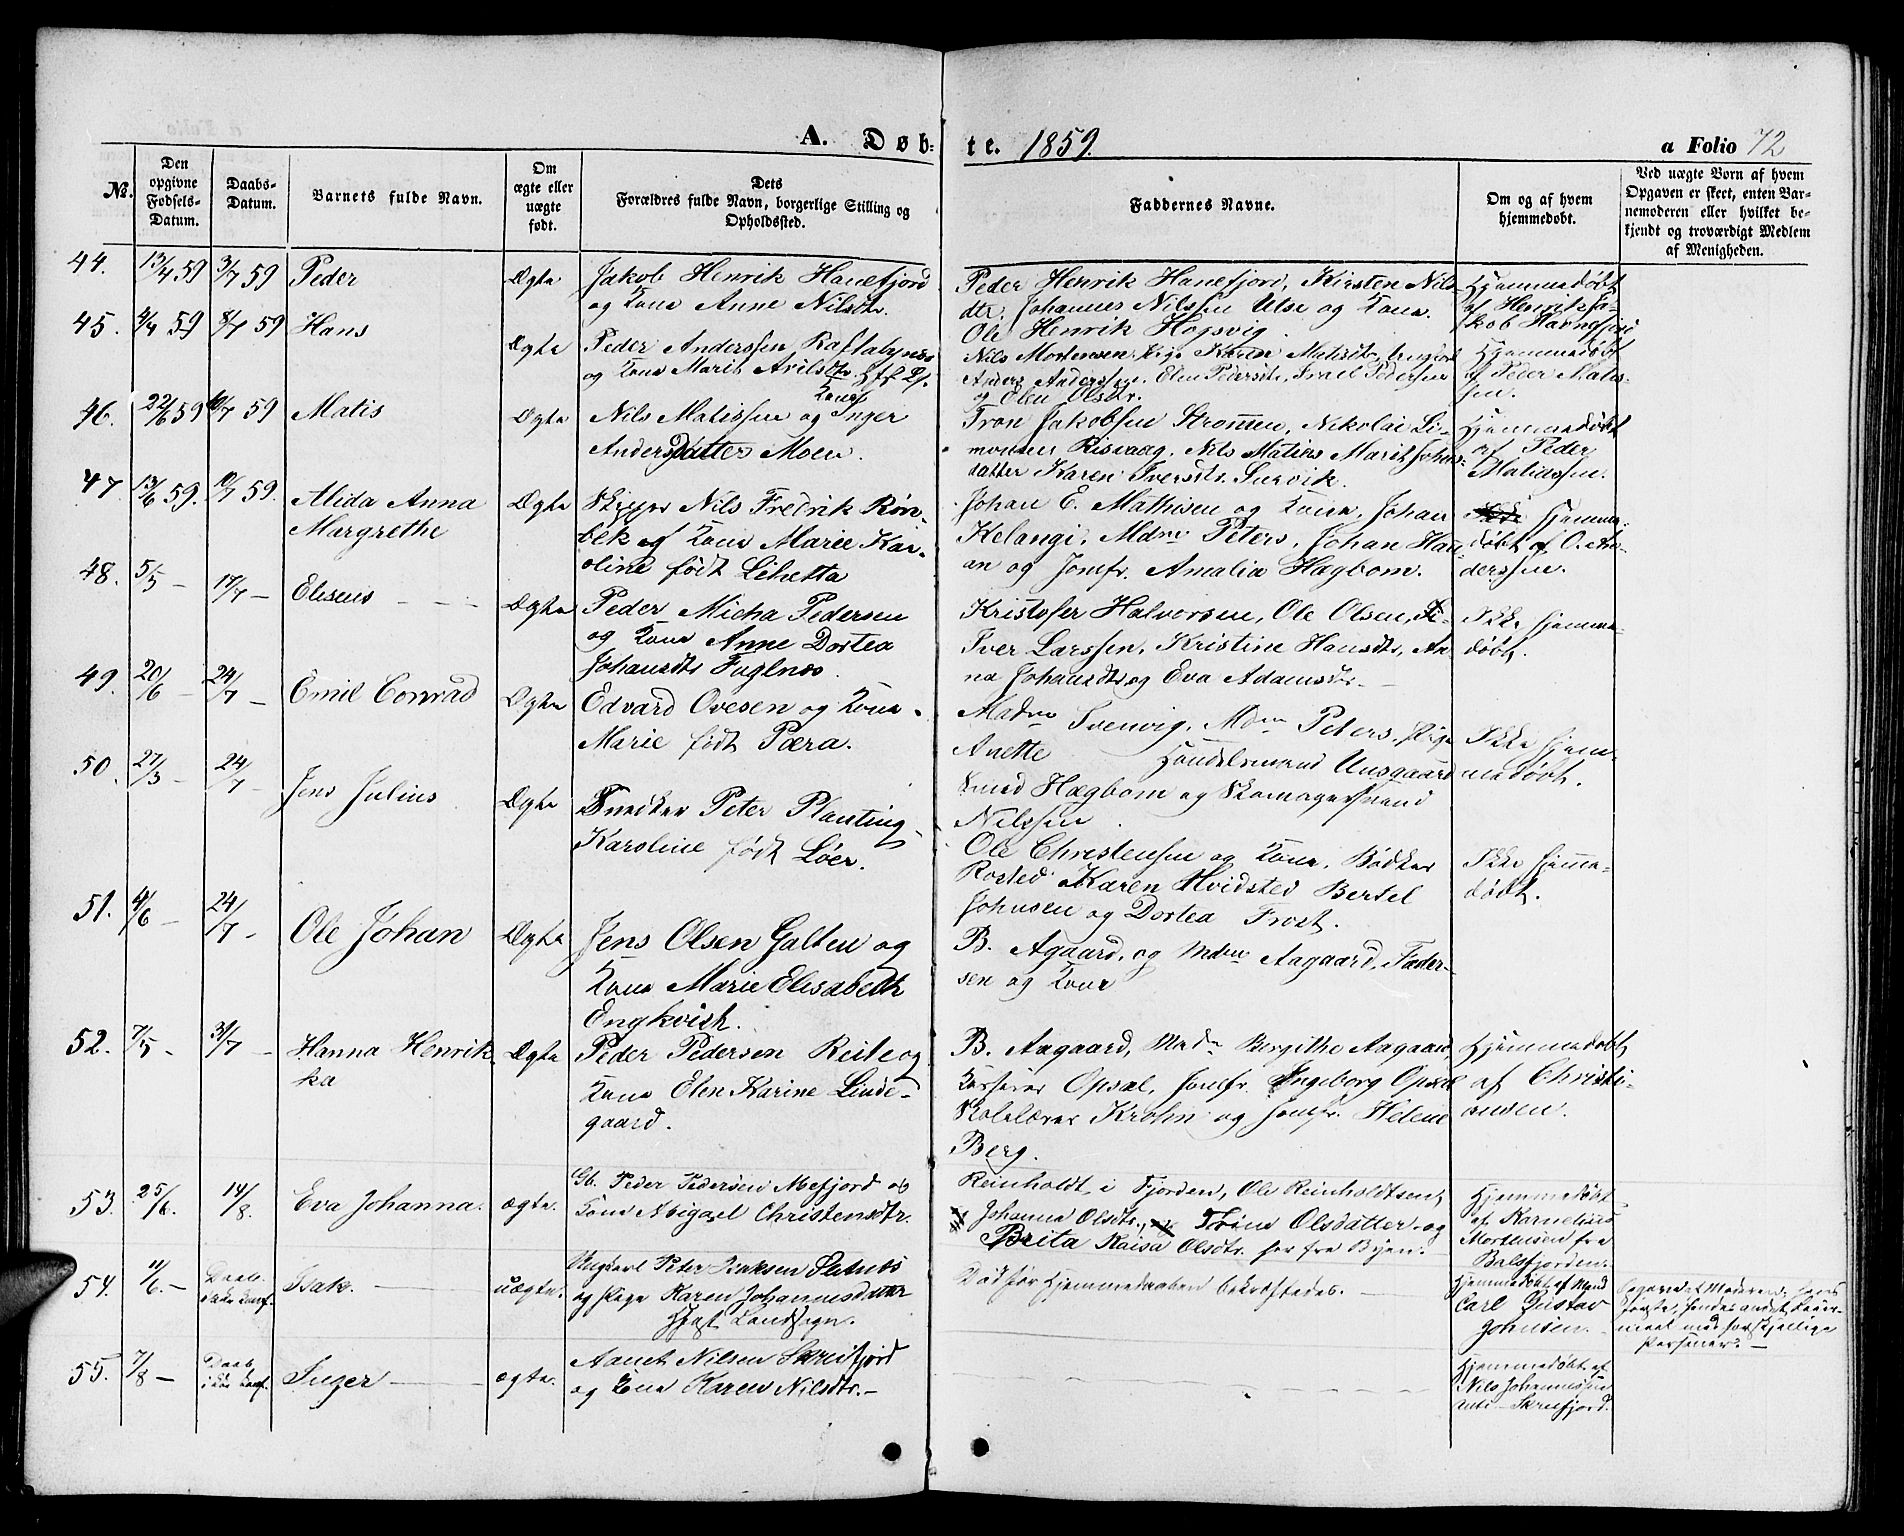 A. Døb-
te. 1859.
a Folio 72
No.
Den opgivne Fødsels-Datum.
Daabs-Datum.
Barnets fulde Navn.
Om ægte eller uægte født.
Dets Forældres fulde Navn, borgerlige Stilling og Opholdssted.
Faddernes Navne.
Om og af hvem hjemmedøbt.
Ved uægte Børn af hvem Opgaven er skeet, enten Barnemoderen eller hvilket bekjendt og troværdigt Medlem af Menigheden.
44. 13/4 59 3/7 59 Peder Ægte
Jakob Henrik Hanefjord
og Kone Anne Nilsdtr.
Peder Henrik Hanefjord, Kirsten Nils-
dtr. Johannes Nilssen Ulse og Kone.
Ole Henrik Hogsvig.
Hjemmedøbt
af Henrik Ja-
kob Hannefjord
45. 4/4 59 8/7 59 Hans Ægte
Peder Anderssen
og Kone Marit
Nils Mortensen, Pige Karen
Anders Anderssen, Elen Pedersdtr, Israel Pedersen
og Elen Olsdtr.
Hjemmedøbt
af Peder Matis-
sen.
46. 22/6 59 10/7 59 Matis Ægte
Nils Matissen og Kone Inger
Andersdatter Moen.
Tron Jakobsen Strømen, Nikolai Si-
monsen Risvaag, Nils Matias Marit Johans-
datter Karen Iversdtr. Survik.
Hjemmedøbt
af Peder
Matiassen.
47. 13/6 59. 10/7 59. Alida Anna
Margrethe Ægte
Skipper Nils Fredrik Røn-
bek og Kone Marie Kar-
oline født Lihetta
Johan E. Mathisen og Kone, Johan
Kelangi, Mdme Peters, Johan Hau-
an og Jomfr. Amalia Hagbom.
Hjemme-
døbt af O. An-
derssen.
48. 5/5 - 17/7 - Eliseus Ægte
Peder Micha Pedersen
og Kone Anne Dortea
Johansdtr Fuglnes.
Kristofer Halvorsen, Ole Olsen,
Iver Larssen, Kristine Hansdtr, An-
na Johansdtr og Eva Adamsdtr.
Ikke hjemme-
døbt.
49. 20/6 - 24/7 - Emil Conrad Ægte
Edvard Ovesen og Kone
Marie født Pæra.
Madme Svenvig, Mdme Peters, Pige
Anette Handelsmand Unsgaard
Smed Hagbom og Skomagersvend
Nilssen.
Ikke hjem-
medøbt.
50. 27/3 - 24/7 - Jens Julius Ægte
Snedker Peter Planting
Karoline født Löer.
Ole Christensen og Kone, Bødker
Rosted, Karen Hvidsted Bertel
Johnsen og Dortea Frost.
Ikke hjemme-
døbt.
51. 4/6 - 24/7 - Ole Johan Ægte
Jens Olsen Galten og
Kone Marie Elisabeth
Engkvist.
B. Agaard, og Mdme Aagaard,
sen og Kone
52. 7/5 - 31/7 - Hanna Henrik-
ka Ægte
Peder Pedersen Reite og
Kone Elen Karine Linde-
gaard.
B. Aagaard, Madme Bergithe Aagaard,
Kasserer Opsal, Jomfr. Ingeborg Opsal
Skolelærer Krohn og Jomfr. Helene
Berg.
Hjemmedøbt
af Christi-
ansen.
53. 25/6. 14/8. Eva Johanna. ægte.
Gb. Peder Pedersen Mefjord og
Kone Abigael Christensdtr.
Reinholdt i Fjorden, Ole Reinholdtsen,
Johanna Olsdtr., Trine Olsdatter og
Brita Kaisa Olsdtr. her fra Byen.
Hjemmedøbt
af Kornelius
Mortensen fra
Balsfjorden.
54. 11/6. - Daab
ikke konf. Isak. uægte.
Ungkarl Peter Isaksen
og Pige Karen Johannesdatter
Død før Hjemmedaaben bekræftedes.
Hjemmedøbt af Mand
Carl Gustav
Johnsen.
Opgivet af Moderen, hans
første, hendes andet Leier-
maal med forskjellige
Personer.
55. 7/8 - Daab
ikke konf. Inger ægte.
Nilsen Skreifjord
og Kone Karen Nilsdtr.
Hjemmedøbt af
Nils Johannessen
Skreifjord.